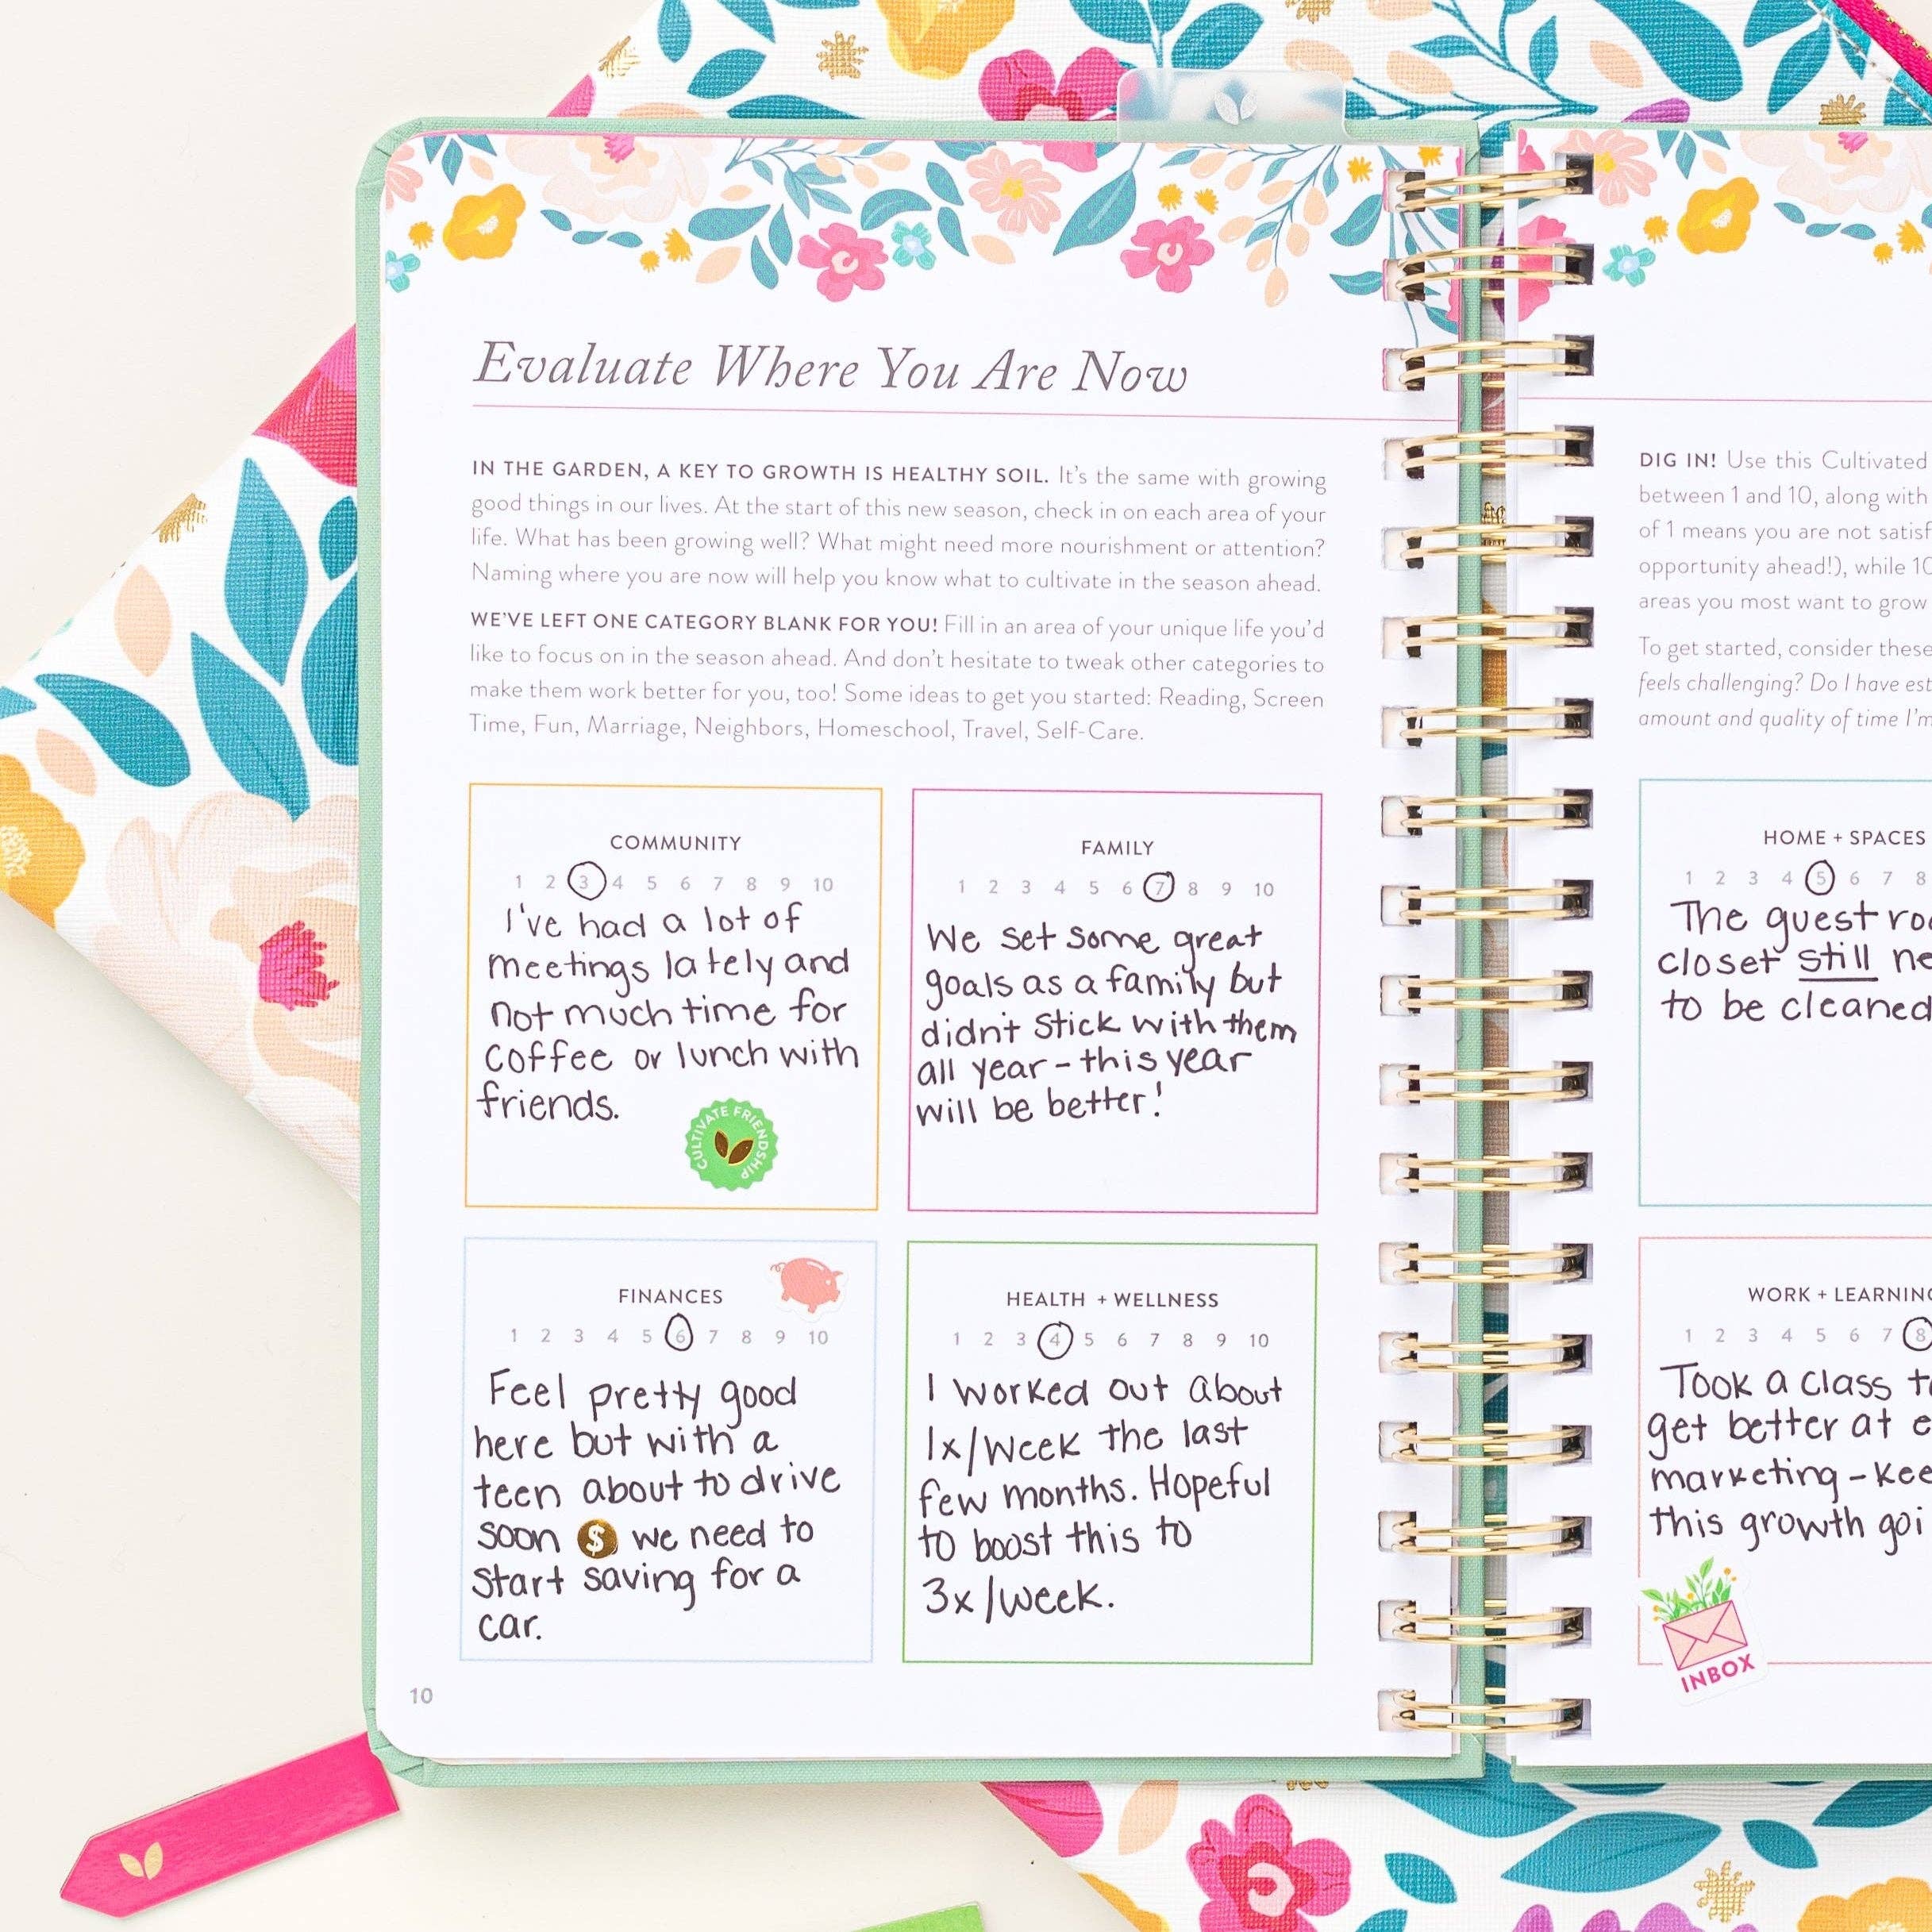 Evaluate Where You Are Now
IN THE GARDEN, A KEY TO GROWTH IS HEALTHY SOIL. It's the same with growing
good things in our lives. At the start of this new season, check in on each area of your
life. What has been growing well? What might need more nourishment or attention?
Naming where you are now will help you know what to cultivate in the season ahead.
WE'VE LEFT ONE CATEGORY BLANK FOR YOU! Fill in an area of your unique life you'd
like to focus on in the season ahead. And don't hesitate to tweak other categories to
make them work better for you, too! Some ideas to get you started: Reading, Screen
Time, Fun, Marriage, Neighbors, Homeschool, Travel, Self-Care.
COMMUNITY
1 2 3 4 5 6 7 8 9 10
I've had a lot of
meetings lately and
not much time for
coffee or lunch with
friends.
CULTIVATE FRIENDSHIP
FAMILY
1 2 3 4 5 6 7 8 9 10
We set some great
goals as a family but
didn't stick with them
all year - this year
will be better!
FINANCES
1 2 3 4 5 6 7 8 9 10
Feel pretty good
here but with a
teen about to drive
soon $ we need to
start saving for a
car.
HEALTH + WELLNESS
1 2 3 4 5 6 7 8 9 10
I worked out about
1x/week the last
few months. Hopeful
to boost this to
3x/week.
10
DIG IN! Use this Cultivated
between 1 and 10, along with
of 1 means you are not
opportunity ahead!), while
areas you most want to grow
To get started, consider these
feels challenging? Do I have
amount and quality of time
HOME + SPACES
1 2 3 4 5 6 7 8
The guest
closet still
to be cleaned
WORK + LEARNING
1 2 3 4 5 6 7 8
Took a class
get better at
marketing -
this growth
INBOX